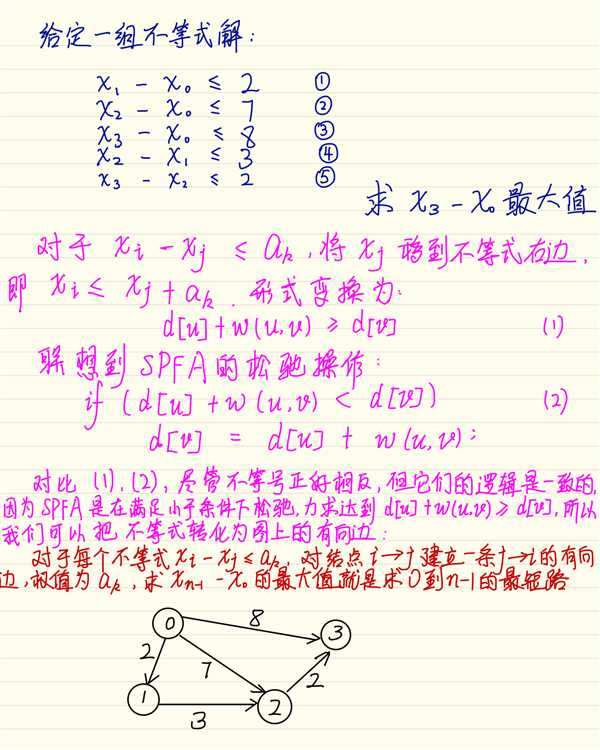 给定一组不等式解:
x₁ - x₀ ≤ 2 ①
x₂ - x₀ ≤ 7 ②
x₃ - x₀ ≤ 8 ③
x₂ - x₁ ≤ 3 ④
x₃ - x₂ ≤ 2 ⑤
求 x₃ - x₀ 最大值
对于 xᵢ - xⱼ ≤ aₖ, 将 xⱼ 移到不等式右边,
即 xᵢ ≤ xⱼ + aₖ. 形式变换为:
d[u] + w(u,v) ≥ d[v] (1)
联想到 SPFA 的松弛操作:
if (d[u] + w(u,v) < d[v]) (2)
d[v] = d[u] + w(u,v);
对比 (1), (2), 尽管不等号正好相反, 但它们的逻辑是一致的,
因为SPFA是在满足小于条件下松弛, 力求达到 d[u]+w(u,v) ≥ d[v], 所以
我们可以把不等式转化为图上的有向边:
对于每个不等式 xᵢ - xⱼ ≤ aₖ, 对结点 i→j 建立一条 j→i 的有向
边, 权值为 aₖ, 求 xₙ₋₁ - x₀ 的最大值就是求 0 到 n-1 的最短路
0
8
3
2
7
2
1
3
2